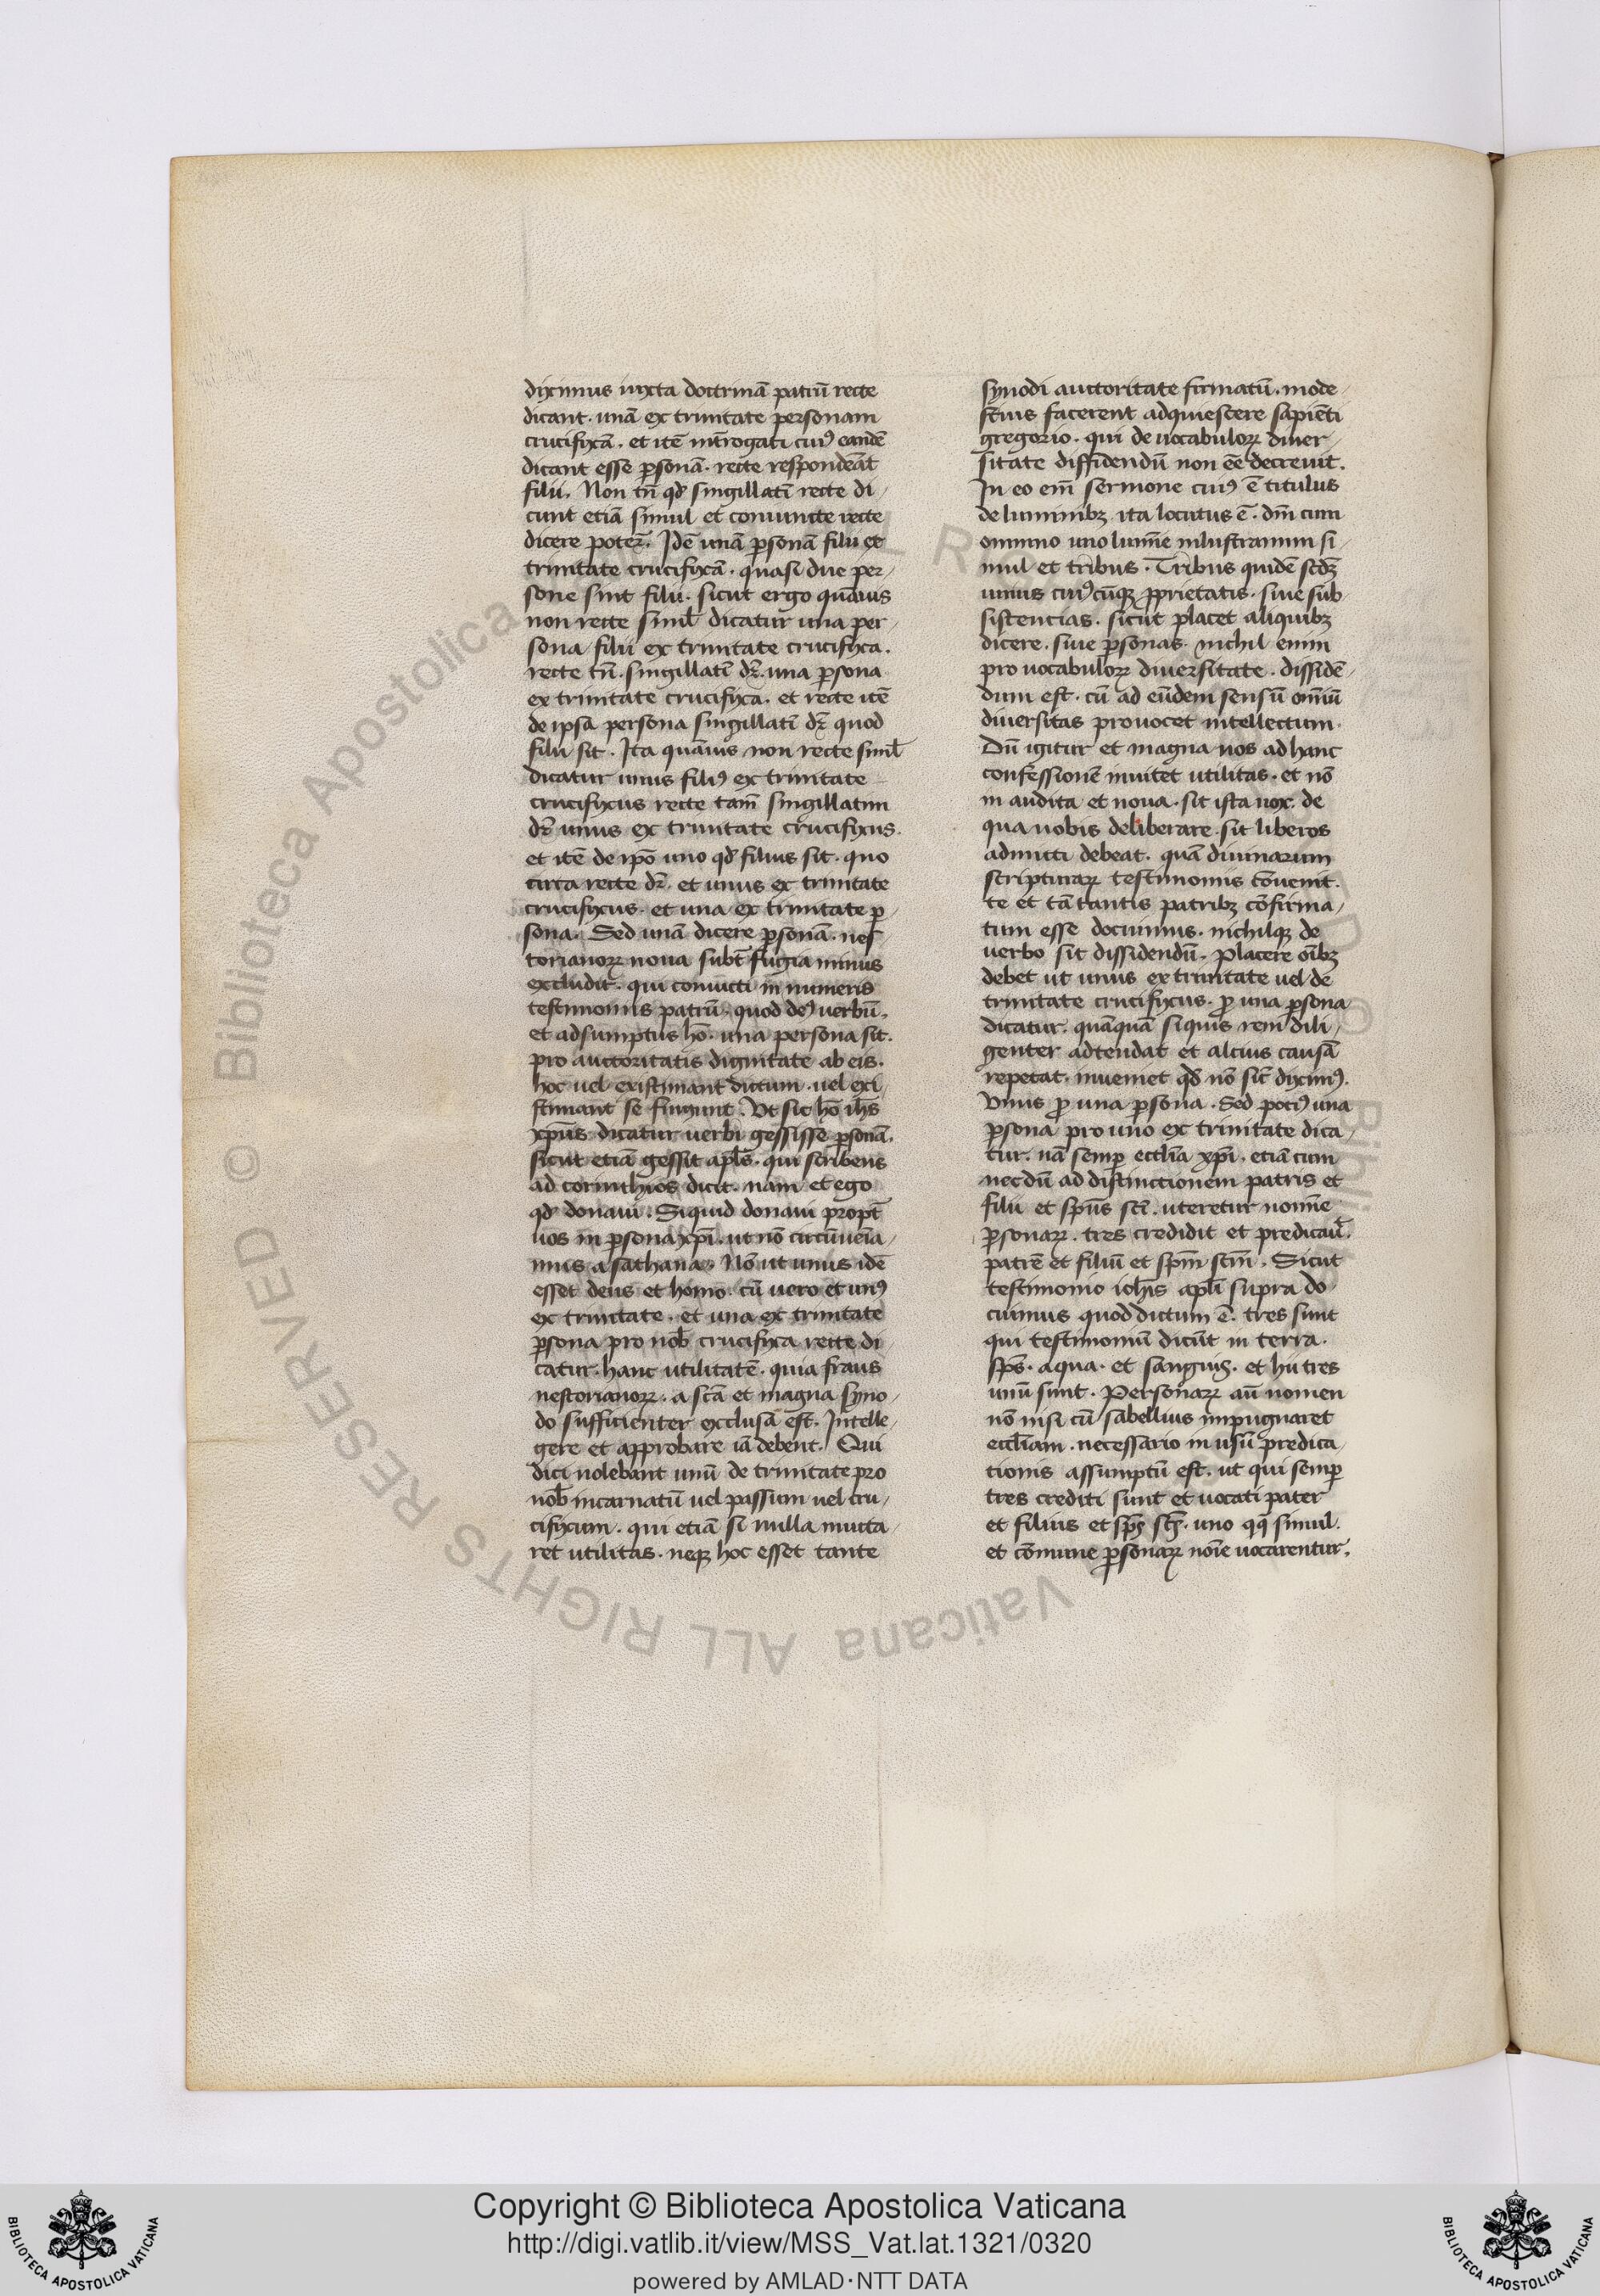 diximus iuxta doctrinā patrū recte
dicant · unā ex trinitate personam
crucifixā · et itē int̄rogati cuiꝰ eandē
dicant esse ꝑsonā · recte respondeāt
filii. Non tn̄ qd̓ singillatī recte di⸗
cunt etiā simul et coniuncte recte
dicere poter̄. Idē unā ꝑsonā filii et
trinitate crucifixā · quasi due per⸗
sone sint filii · sicut ergo quāuis
non recte siml̄ dicatur una per⸗
sona filii ex trinitate crucifixa ·
recte tn̄ · singillatī dr̄ · una ꝑsona
ex trinitate crucifixa · et recte itē
de ipsa persona singillatī dr̄ quod
filii sit · Ita quāuis non recte siml̄
dicatur unus filiꝰ ex trinitate
crucifixus recte tam̄ singillatim
dr̄ unus ex trinitate crucifixus.
et itē de ip̄o uno qd̓ filius sit · quo
circa recte dr̄ · et unus ex trinitate
crucifixus · et una ex trinitate ꝑ⸗
sona. Sed unā dicere ꝑsonā · nes
torianoꝝ noua subt̄ fugia minus
excludit · qui conuicti in numeris
testimoniis patrū · quod deꝰ uerbū.
et adsumptus hō · una persona sit.
pro auctoritatis dignitate ab eis ·
hoc uel existimant dictum · uel exi⸗
stimant se fingunt. Ut sic hō ihs̄
xp̄us dicatur uerbi gessisse ꝑsonā.
sicut etiā gessit apl̄s · qui scribens
ad corinthios dicit · nam et ego
qd̓ donaui. Siquid donaui propt̄
uos in ꝑsona xp̄i · ut nō circūuenia⸗
mus a sathana. Nō ut unus idē
esset deus et homo · cū uero et unꝰ
ex trinitate · et una ex trinitate
ꝑsona pro nob̄ crucifixa recte di
catur · hanc utilitatē · quia fraus
nestorianoꝝ · a scā et magna syno⸗
do sufficienter exclusa est. Intelle⸗
gere et approbare iā debent. Qui
dici nolebant unū de trinitate pro
nob̄ incarnatū uel passum uel cru⸗
cifixum · qui etiā si nulla inuita⸗
ret utilitas · neqꝫ hoc esset tante
synodi auctoritate firmatū · mode⸗
stius facerent adquiescere sapiēti
gregorio · qui de uocabuloꝝ diuer⸗
sitate diffidendū non eē decreuit.
In eo em̄ sermone cuiꝰ ē titulus
de luminibꝫ ita locutus ē · dm̄ cum
omnino uno lumīe inlustramini si⸗
mul et tribus · Tribus quidē scd̄ꝫ
unius cuiꝰcūqꝫ ꝓprietatis · siue sub
sistencias · sicut placet aliquibꝫ
dicere · siue ꝑsonas · nichil enim
pro uocabuloꝝ diuersitate · dissidē⸗
dum est · cū ad eūdem sensū om̄iū
diuersitas prouocet intellectum ·
Dū igitur et magna nos ad hanc
confessionē inuitet utilitas · et nō
in audita et noua · sit ista uox · de
qua nobis deliberare · sit liberos
admitti debeat · quā diuinarum
scripturaꝝ testimoniis cōuenit.
te et tā tantis patribꝫ cōfirma⸗
tum esse docuimus · nichilqꝫ de
uerbo sit dissidendū. Placere oībꝫ
debet ut unus ex trinitate uel de
trinitate crucifixus · ꝓ una ꝑsona
dicatur · quāquā siquis rem dili⸗
genter adtendat et alcius causā
repetat · inueniet qd̓ nō sic̄ diximꝰ.
Unus ꝓ una ꝑsona · Sed pociꝰ una
ꝑsona pro uno ex trinitate dica⸗
tur · nā semꝑ eccl̄ia xp̄i · etiā cum
necdū ad distinctionem patris et
filii et sp̄us sc̄i · uteretur nomīe
ꝑsonaꝝ · tres credidit et predicauͬ.
patrē et filiū et sp̄m sc̄m · Sicut
testimonio ioh̄is apl̄i supra do⸗
cuimus quod dictum ē · tres sunt
qui testimoniū dicūt in terra ·
sp̄s · aqua · et sanguis · et hii tres
unū sunt · Personaꝝ aū nomen
nō nisi cū sabellius impugnaret
eccl̄iam · necessario in usū predica⸗
tionis assumptū est · ut qui semꝑ
tres crediti sunt et uocati pater
et filius et sp̄s sc̄s · uno qq̄ simul ·
et cōmune ꝑsonaꝝ noīe uocarentur.
Copyright © Biblioteca Apostolica Vaticana
http://digi.vatlib.it/view/MSS_Vat.lat.1321/0320
powered by AMLAD·NTT DATA